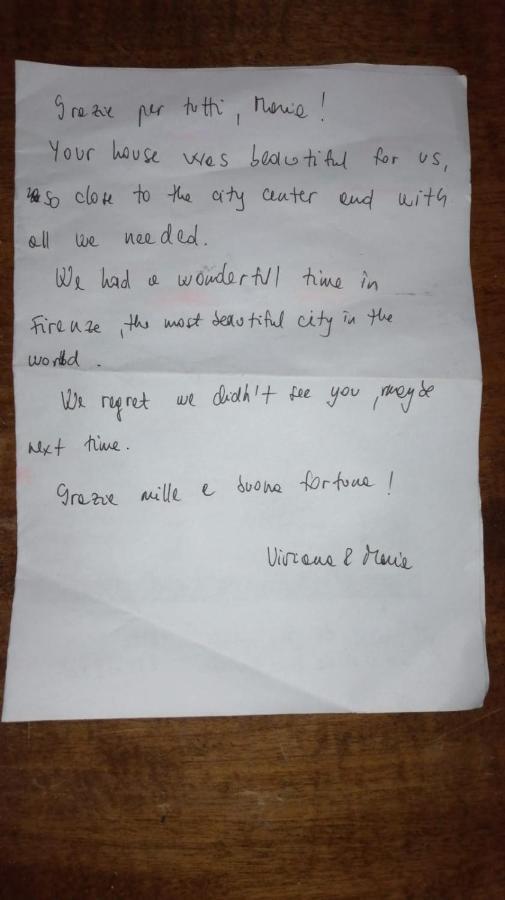 Grazie per tutti, Maria!
Your house was beautiful for us,
so close to the city center and with
all we needed.
We had a wonderfull time in
Firenze, the most beautiful city in the
world.
We regret we didn't see you, maybe
next time.
Grazie mille e buona fortuna!
Viviana & Maria